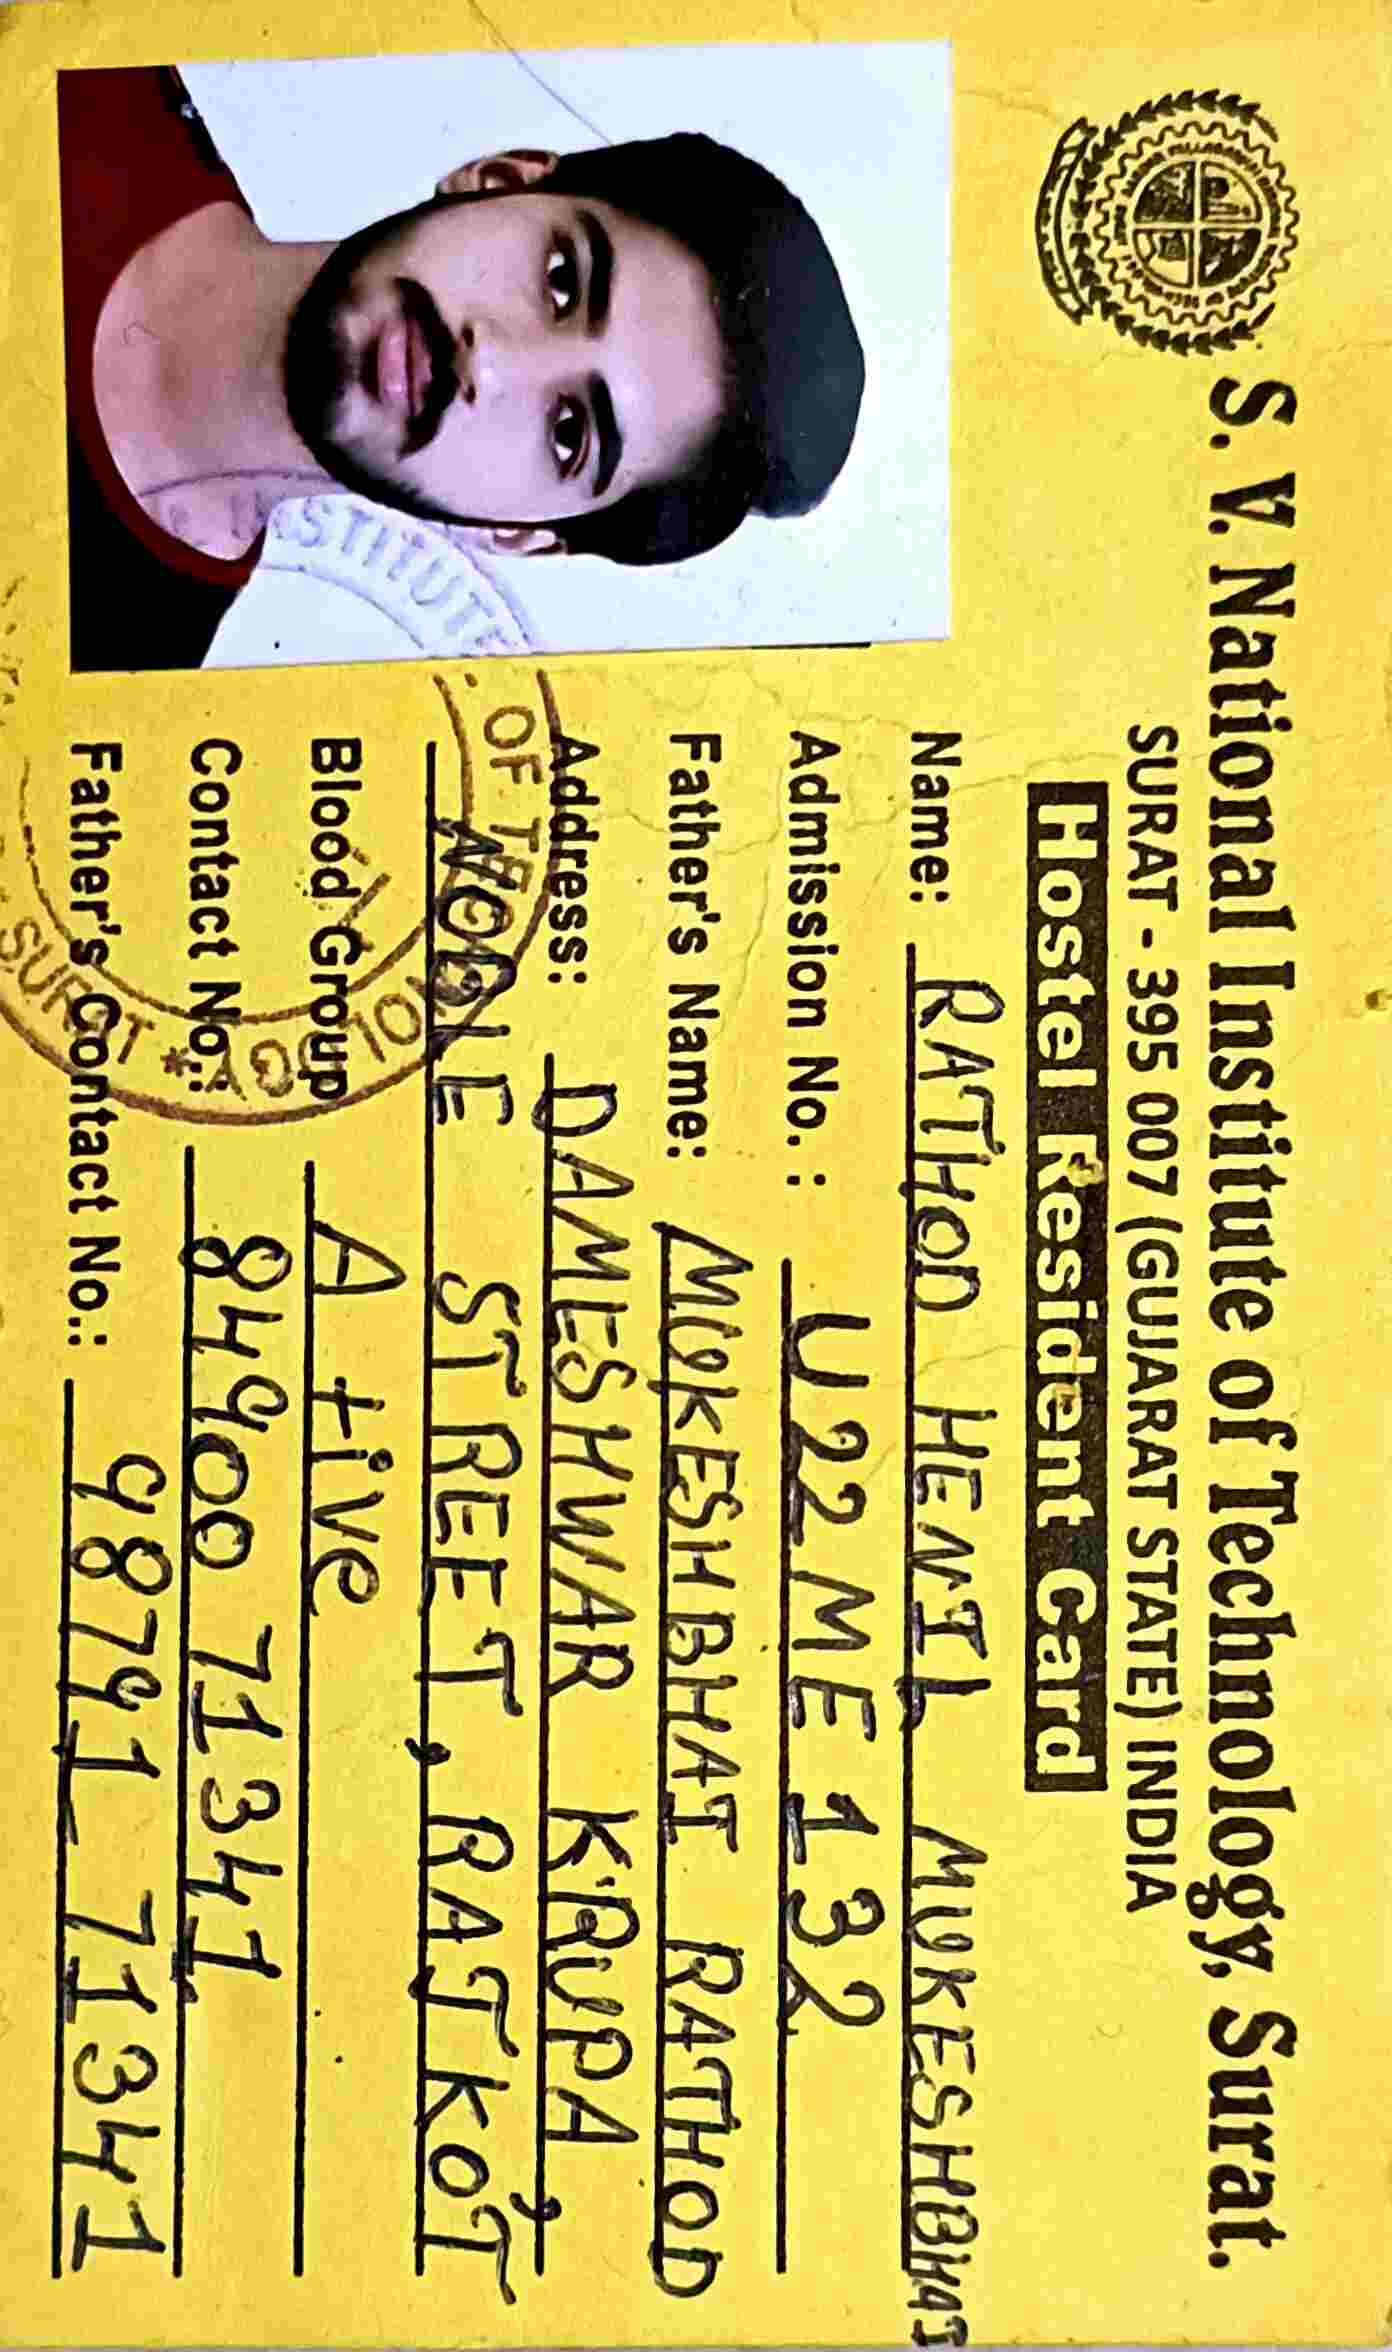 S. V. National Institute of Technology, Surat.
SURAT - 395 007 (GUJARAT STATE) INDIA
Hostel Resident Card
Name: RATHOD HENIL MUKESHBHAI
Admission No. : U22ME132
Father's Name: MUKESHBHAI RATHOD
Address: DAMESHWAR KRUPA,
NOBLE STREET, RAJKOT
Blood Group A +ive
Contact No.: 84900 71341
Father's Contact No.: 98791 71341
STITUTE OF TECHNOLOGY * SURAT